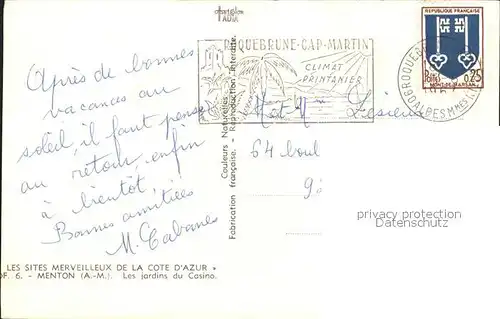 Après de bonnes
vacances au
soleil, il faut penser
au retour, enfin
à bientôt !
Bonnes amitiées
M. Cabanes
LES SITES MERVEILLEUX DE LA COTE D'AZUR
OF. 6. - MENTON (A.-M.). Les jardins du Casino.
Fabrication française. - Reproduction interdite.
Couleurs Naturelles
ROQUEBRUNE-CAP-MARTIN
CLIMAT
PRINTANIER
REPUBLIQUE FRANÇAISE
Postes 0,25
MONT-DE-MARSAN
ALPES MMES
M et Mme Lesieur
64 boul
privacy protection
Datenschutz